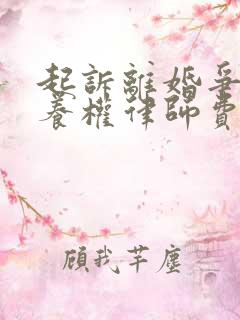 起訴離婚爭
養權律師費
顧我芊塵